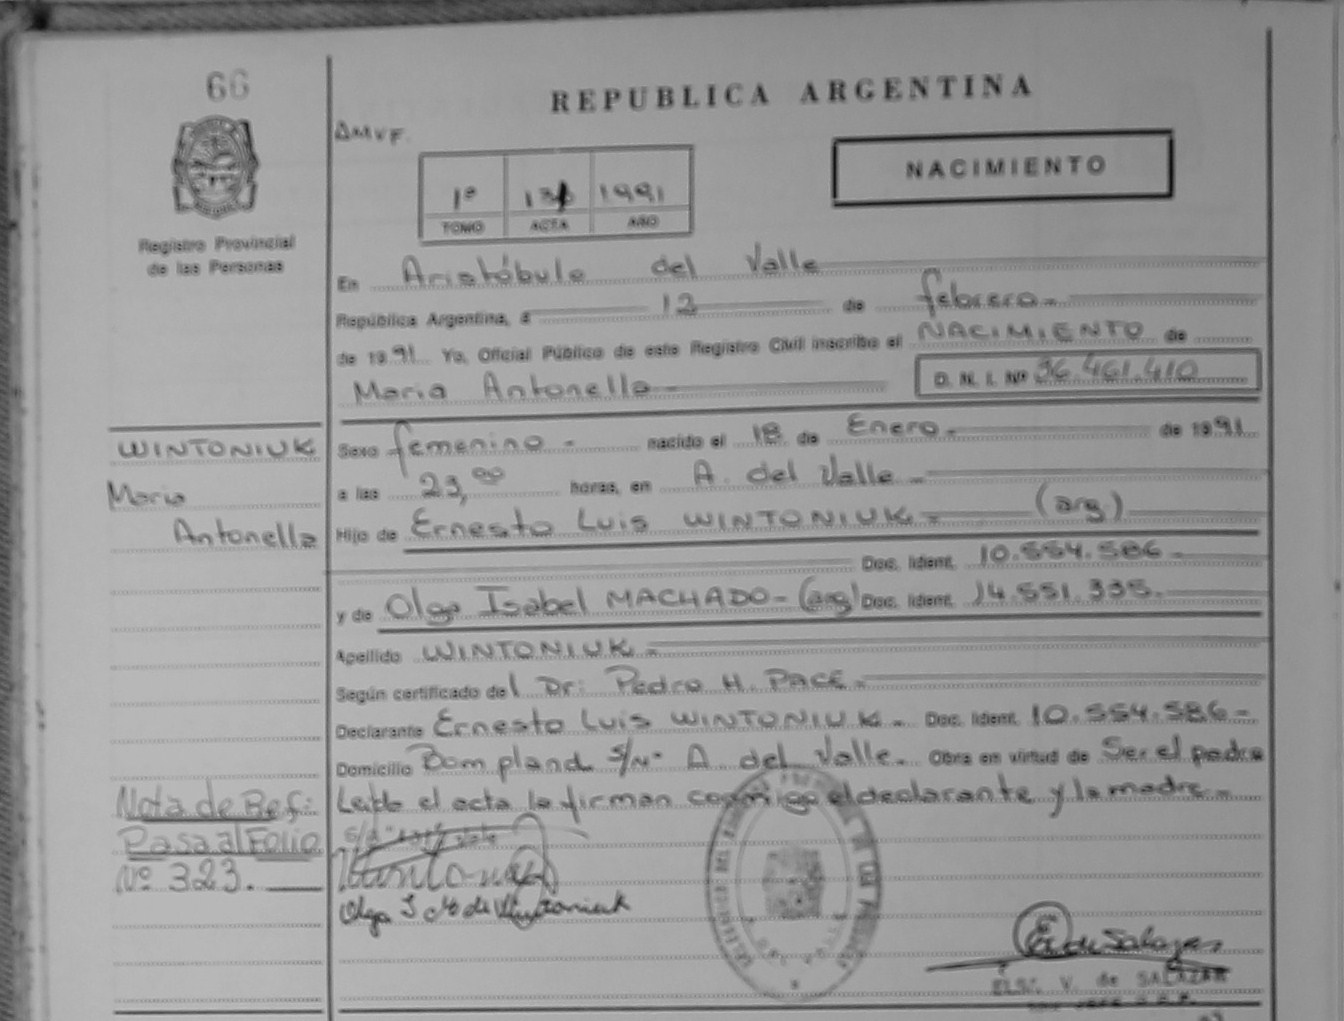 66
REPUBLICA ARGENTINA
AMVF.
NACIMIENTO
1º 1991
TOMO ACTA AÑO
Registro Provincial
de las Personas
En Aristóbulo del Valle
República Argentina, a 12 de febrero.-
de 1991 Yo, Oficial Público de este Registro Civil inscribo el NACIMIENTO de
Maria Antonella- D. N. I. Nº 36.461.410
WINTONIUK
Maria
Antonella
Sexo femenino - nacido el 18 de Enero.- de 1991
a las 23,00 horas, en A. del Valle.-
Hijo de Ernesto Luis WINTONIUK- (arg.)
Doc. Ident. 10.554.586-
y de Olga Isabel MACHADO- (arg) Doc. Ident. 14.551.335.
Apellido WINTONIUK-
Según certificado del Dr: Pedro H. PACE.-
Declarante Ernesto Luis WINTONIUK- Doc. Ident. 10.554.586-
Domicilio Bompland S/Nº A. del Valle. Obra en virtud de Ser el padre
Leída el acta la firman conmigo el declarante y la madre.-
Nota de Ref:
Pasa al Folio
Nº 323.
Olga I de Wintoniuk
de Salazar
V. de SALAZAR